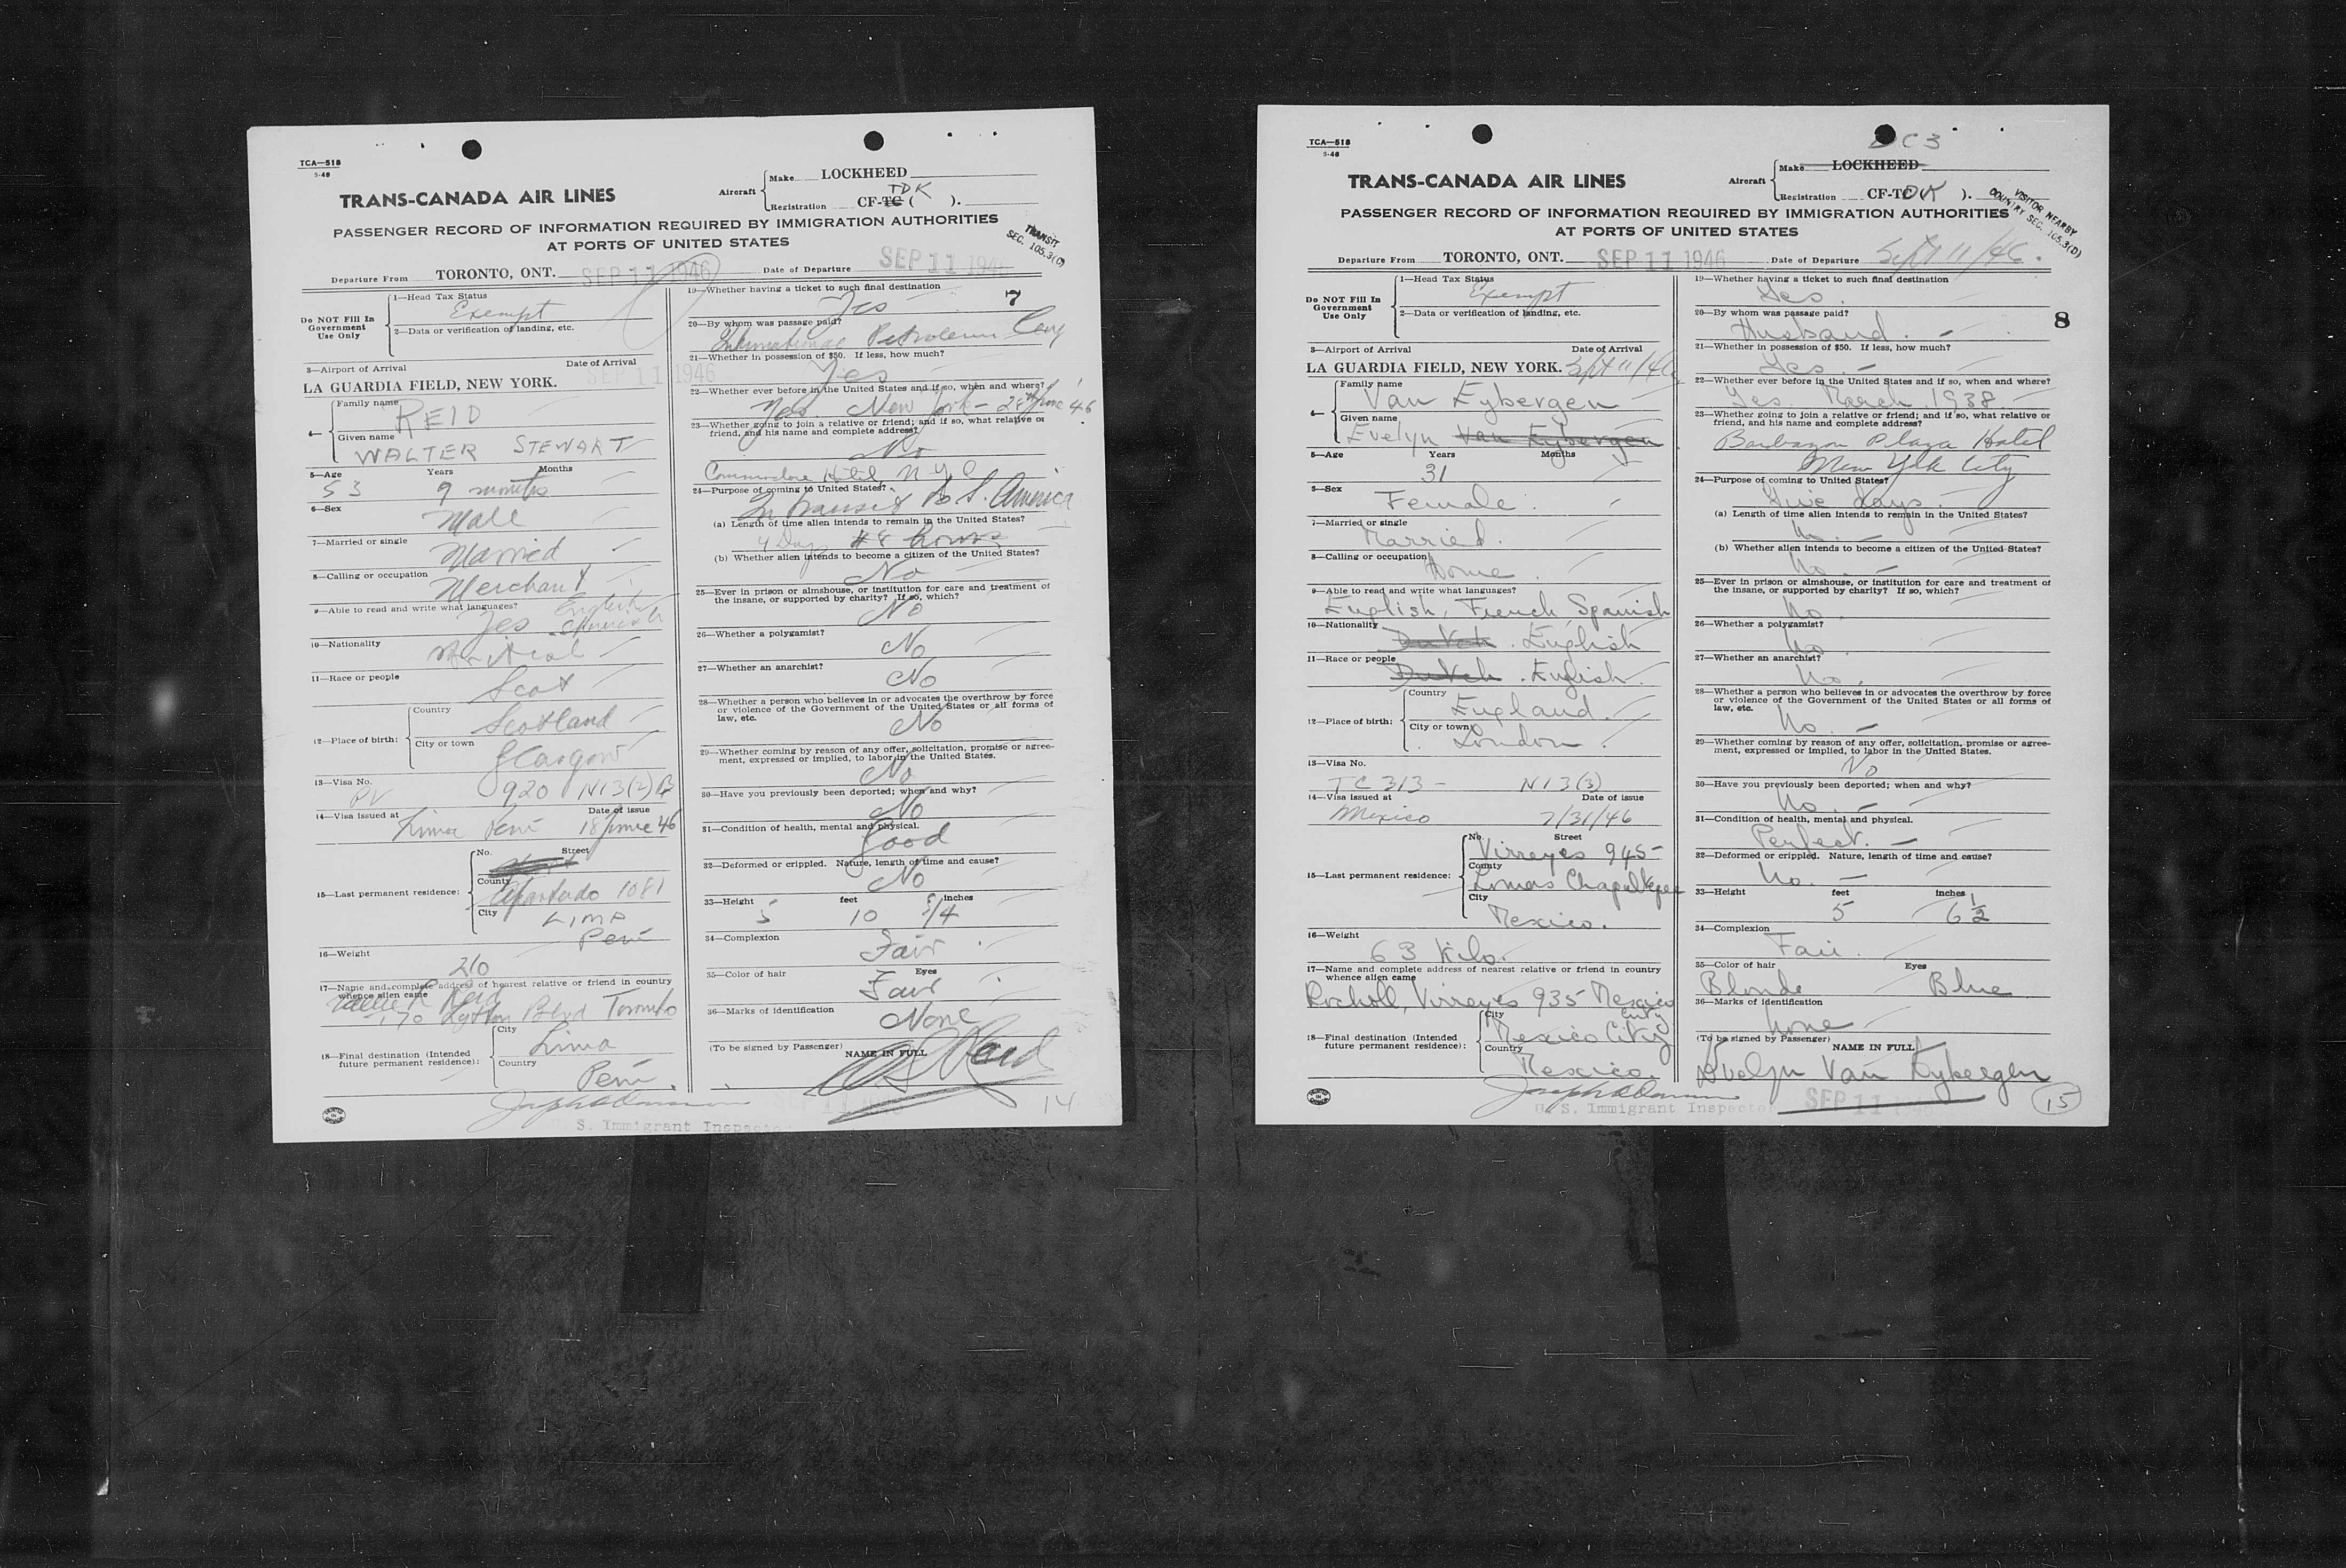 TCA—518
5-46
TRANS-CANADA AIR LINES
Aircraft
Make LOCKHEED
Registration CF-TC ( ).
TDK
PASSENGER RECORD OF INFORMATION REQUIRED BY IMMIGRATION AUTHORITIES
AT PORTS OF UNITED STATES
TRANSIT
SEC. 105.3(C)
Departure From TORONTO, ONT. SEP 11 1946 Date of Departure SEP 11 1946
Do NOT Fill In
Government
Use Only
1—Head Tax Status
Exempt
2—Data or verification of landing, etc.
3—Airport of Arrival Date of Arrival
LA GUARDIA FIELD, NEW YORK. SEP 11 1946
4— Family name REID
Given name
WALTER STEWART
5—Age Years Months
53 9 months
6—Sex
Male
7—Married or single
Married
8—Calling or occupation
Merchant
9—Able to read and write what languages? English
Yes Spanish
10—Nationality
British
11—Race or people
Scot
12—Place of birth:
Country
Scotland
City or town
Glasgow
13—Visa No.
PV 920 N13(2)
14—Visa issued at Date of issue
Lima Peru 18 June 46
15—Last permanent residence:
No. Street
County
Apartado 1081
City
LIMA
Peru
16—Weight
210
17—Name and complete address of nearest relative or friend in country
whence alien came
Reid
170 Lytton Blvd Toronto
18—Final destination (Intended
future permanent residence):
City
Lima
Country
Peru
U. S. Immigrant Inspector
19—Whether having a ticket to such final destination
Yes
7
20—By whom was passage paid?
International Petroleum Coy
21—Whether in possession of $50. If less, how much?
Yes
22—Whether ever before in the United States and if so, when and where?
Yes. New York – 28th June 46
23—Whether going to join a relative or friend; and if so, what relative or
friend, and his name and complete address?
No
Commodore Hotel, N Y C
24—Purpose of coming to United States?
In transit to S. America
(a) Length of time alien intends to remain in the United States?
4 Days 48 hours
(b) Whether alien intends to become a citizen of the United States?
No
25—Ever in prison or almshouse, or institution for care and treatment of
the insane, or supported by charity? If so, which?
No
26—Whether a polygamist?
No
27—Whether an anarchist?
No
28—Whether a person who believes in or advocates the overthrow by force
or violence of the Government of the United States or all forms of
law, etc.
No
29—Whether coming by reason of any offer, solicitation, promise or agree-
ment, expressed or implied, to labor in the United States.
No
30—Have you previously been deported; when and why?
No
31—Condition of health, mental and physical.
Good
32—Deformed or crippled. Nature, length of time and cause?
No
33—Height feet inches
5 10 3/4
34—Complexion
Fair
35—Color of hair Eyes
Fair
36—Marks of identification
None
(To be signed by Passenger) NAME IN FULL
W S Reid
14
TCA—518
5-46
DC3
TRANS-CANADA AIR LINES
Aircraft
Make LOCKHEED
Registration CF-TC(DK ).
PASSENGER RECORD OF INFORMATION REQUIRED BY IMMIGRATION AUTHORITIES
AT PORTS OF UNITED STATES
VISITOR NEARBY
COUNTRY SEC. 105.3(D)
Departure From TORONTO, ONT. SEP 11 1946 Date of Departure Sept 11/46.
Do NOT Fill In
Government
Use Only
1—Head Tax Status
Exempt
2—Data or verification of landing, etc.
3—Airport of Arrival Date of Arrival
LA GUARDIA FIELD, NEW YORK. Sept 11/46
4— Family name
Van Eybergen
Given name
Evelyn Van Eybergen
5—Age Years Months
31
5—Sex
Female
7—Married or single
Married.
8—Calling or occupation
Home
9—Able to read and write what languages?
English, French, Spanish
10—Nationality
Dutch. English
11—Race or people
Dutch. English.
12—Place of birth:
Country
England.
City or town
London.
13—Visa No.
TC 313 – N13(3)
14—Visa issued at Date of issue
Mexico 7/31/46
15—Last permanent residence:
No. Street
Virreyes 945
County
Lomas Chapultepec
City
Mexico.
16—Weight
63 Kilo.
17—Name and complete address of nearest relative or friend in country
whence alien came
Rocholl, Virreyes 935 Mexico
City
18—Final destination (Intended
future permanent residence):
City
Mexico City
Country
Mexico.
U. S. Immigrant Inspector
19—Whether having a ticket to such final destination
Yes.
20—By whom was passage paid?
Husband. –
8
21—Whether in possession of $50. If less, how much?
Yes. –
22—Whether ever before in the United States and if so, when and where?
Yes. March 1938
23—Whether going to join a relative or friend; and if so, what relative or
friend, and his name and complete address?
Barbazon Plaza Hotel
New York City
24—Purpose of coming to United States?
Five days.
(a) Length of time alien intends to remain in the United States?
(b) Whether alien intends to become a citizen of the United States?
No. –
25—Ever in prison or almshouse, or institution for care and treatment of
the insane, or supported by charity? If so, which?
No
26—Whether a polygamist?
No.
27—Whether an anarchist?
No.
28—Whether a person who believes in or advocates the overthrow by force
or violence of the Government of the United States or all forms of
law, etc.
No. –
29—Whether coming by reason of any offer, solicitation, promise or agree-
ment, expressed or implied, to labor in the United States.
No
30—Have you previously been deported; when and why?
No. –
31—Condition of health, mental and physical.
Perfect. –
32—Deformed or crippled. Nature, length of time and cause?
No. –
33—Height feet inches
5 6 1/2
34—Complexion
Fair.
35—Color of hair Eyes
Blonde Blue
36—Marks of identification
None
(To be signed by Passenger) NAME IN FULL
Evelyn Van Eybergen
SEP 11
15